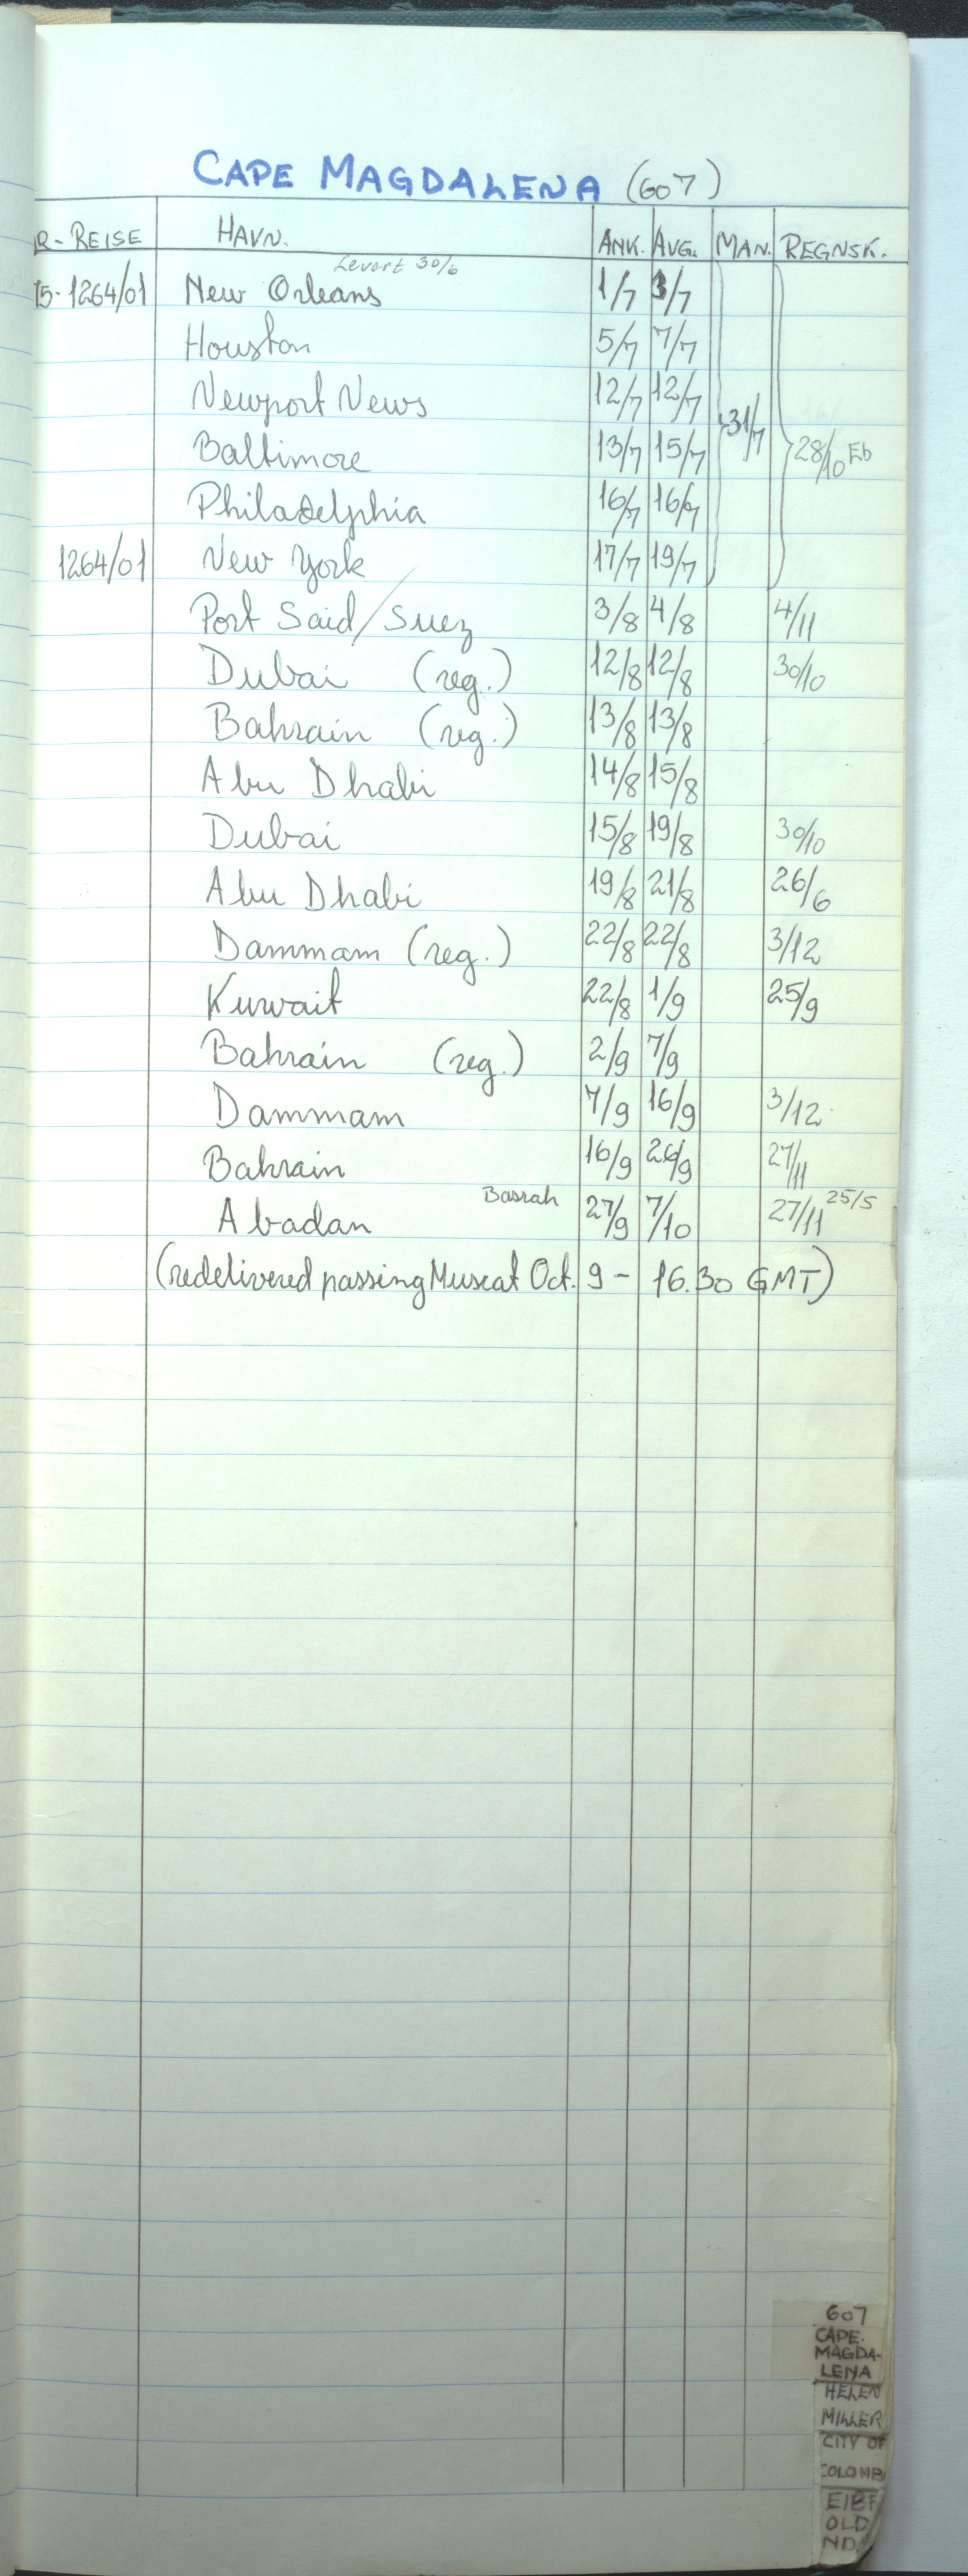 CAPE MAGDALENA (607)
R-REISE HAVN. ANK. AVG. MAN. REGNSK.
Levert 30/6
75-1264/01 New Orleans 1/7 3/7
Houston 5/7 7/7
Newport News 12/7 12/7
31/7
Baltimore 13/7 15/7 28/10 Eb
Philadelphia 16/7 16/7
1264/01 New York 17/7 19/7
Port Said/Suez 3/8 4/8 4/11
Dubai (reg.) 12/8 12/8 30/10
Bahrain (reg.) 13/8 13/8
Abu Dhabi 14/8 15/8
Dubai 15/8 19/8 30/10
Abu Dhabi 19/8 21/8 26/6
Dammam (reg.) 22/8 22/8 3/12
Kuwait 22/8 1/9 25/9
Bahrain (reg.) 2/9 7/9
Dammam 7/9 16/9 3/12
Bahrain 16/9 26/9 27/11
Basrah 25/5
Abadan 27/9 7/10 27/11
(redelivered passing Muscat Oct. 9 - 16.30 GMT)
607
CAPE.
MAGDA-
LENA
HELEN
MILLER
CITY OF
COLOMB
EIBF
OLD
ND